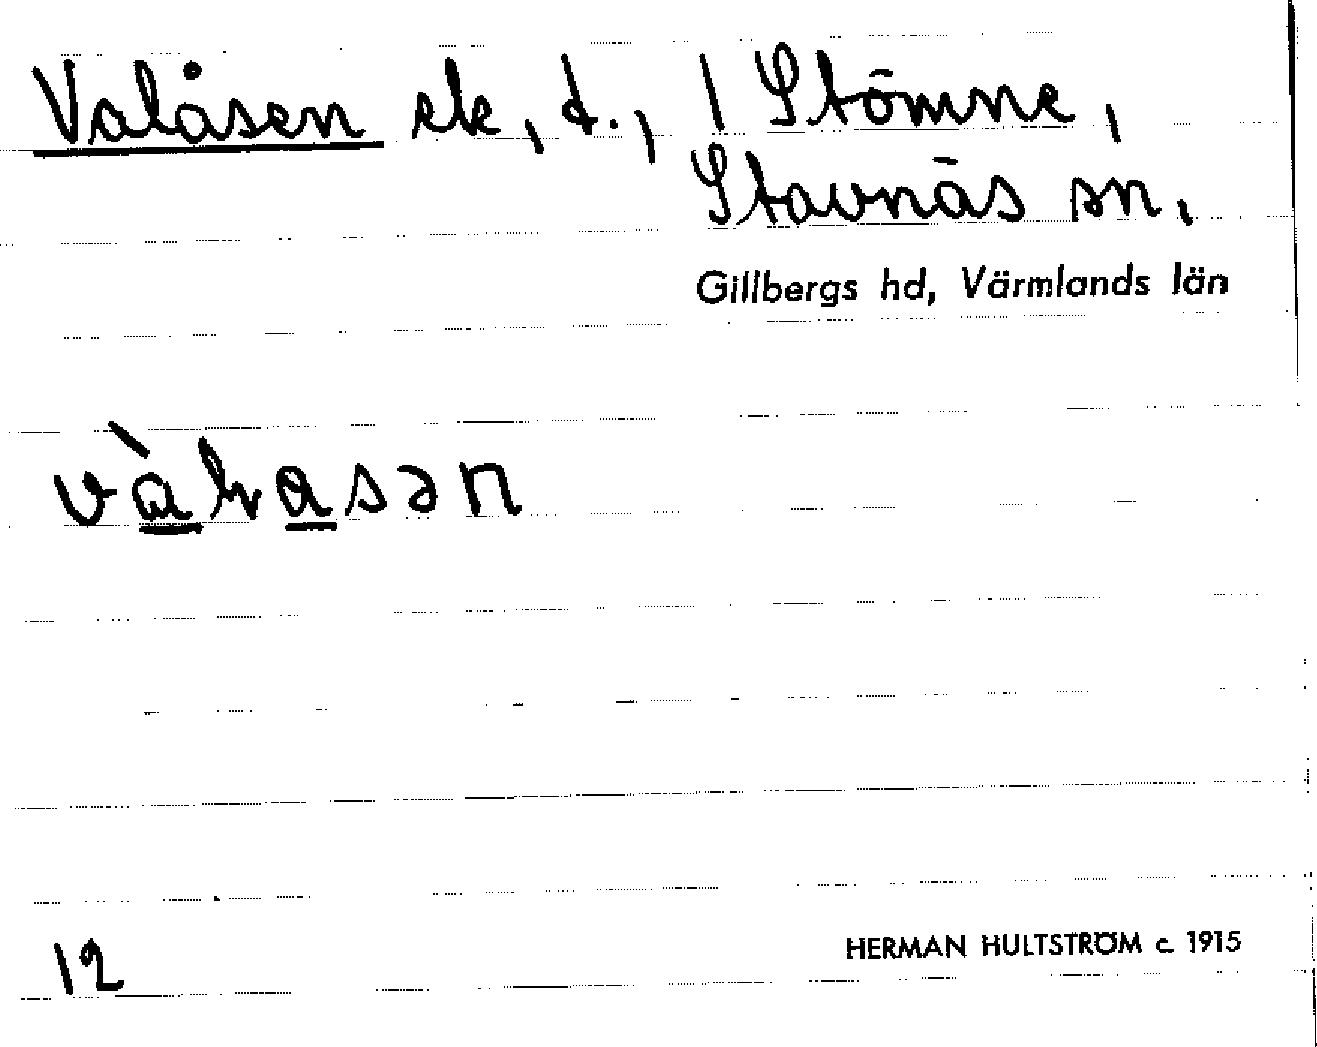 Valåsen sk, t., 1 Stömne,
Stavnäs sn.
Gillbergs hd, Värmlands län
vàɽasən
12
HERMAN HULTSTRÖM c. 1915